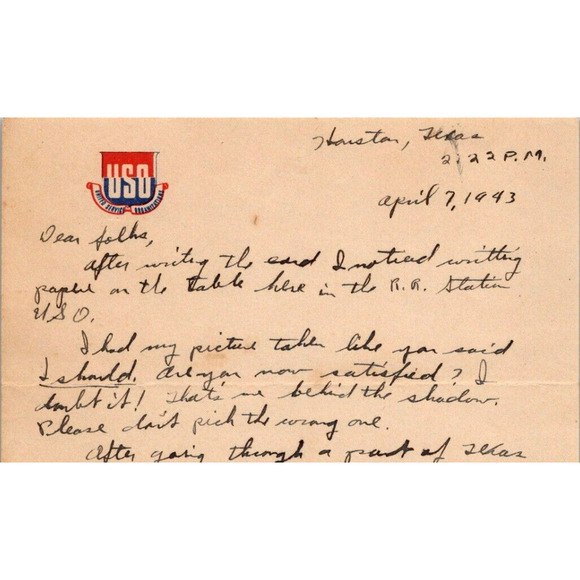 Houston, Texas
2:22 P.M.
April 7, 1943
USO
UNITED SERVICE ORGANIZATIONS
Dear folks,
After writing the card I noticed writting
paper on the table here in the R.R. Station
USO.
I had my picture taken like you said
I should. Are you now satisfied? I
doubt it! That's me behind the shadow.
Please don't pick the wrong one.
After going through a part of Texas